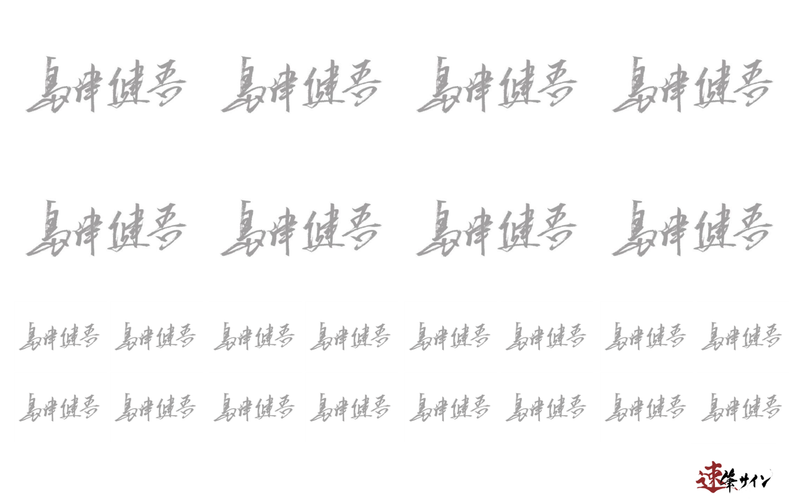 島津健吾 島津健吾 島津健吾 島津健吾
島津健吾 島津健吾 島津健吾 島津健吾
島津健吾 島津健吾 島津健吾 島津健吾 島津健吾 島津健吾 島津健吾 島津健吾
島津健吾 島津健吾 島津健吾 島津健吾 島津健吾 島津健吾 島津健吾 島津健吾
速筆サイン